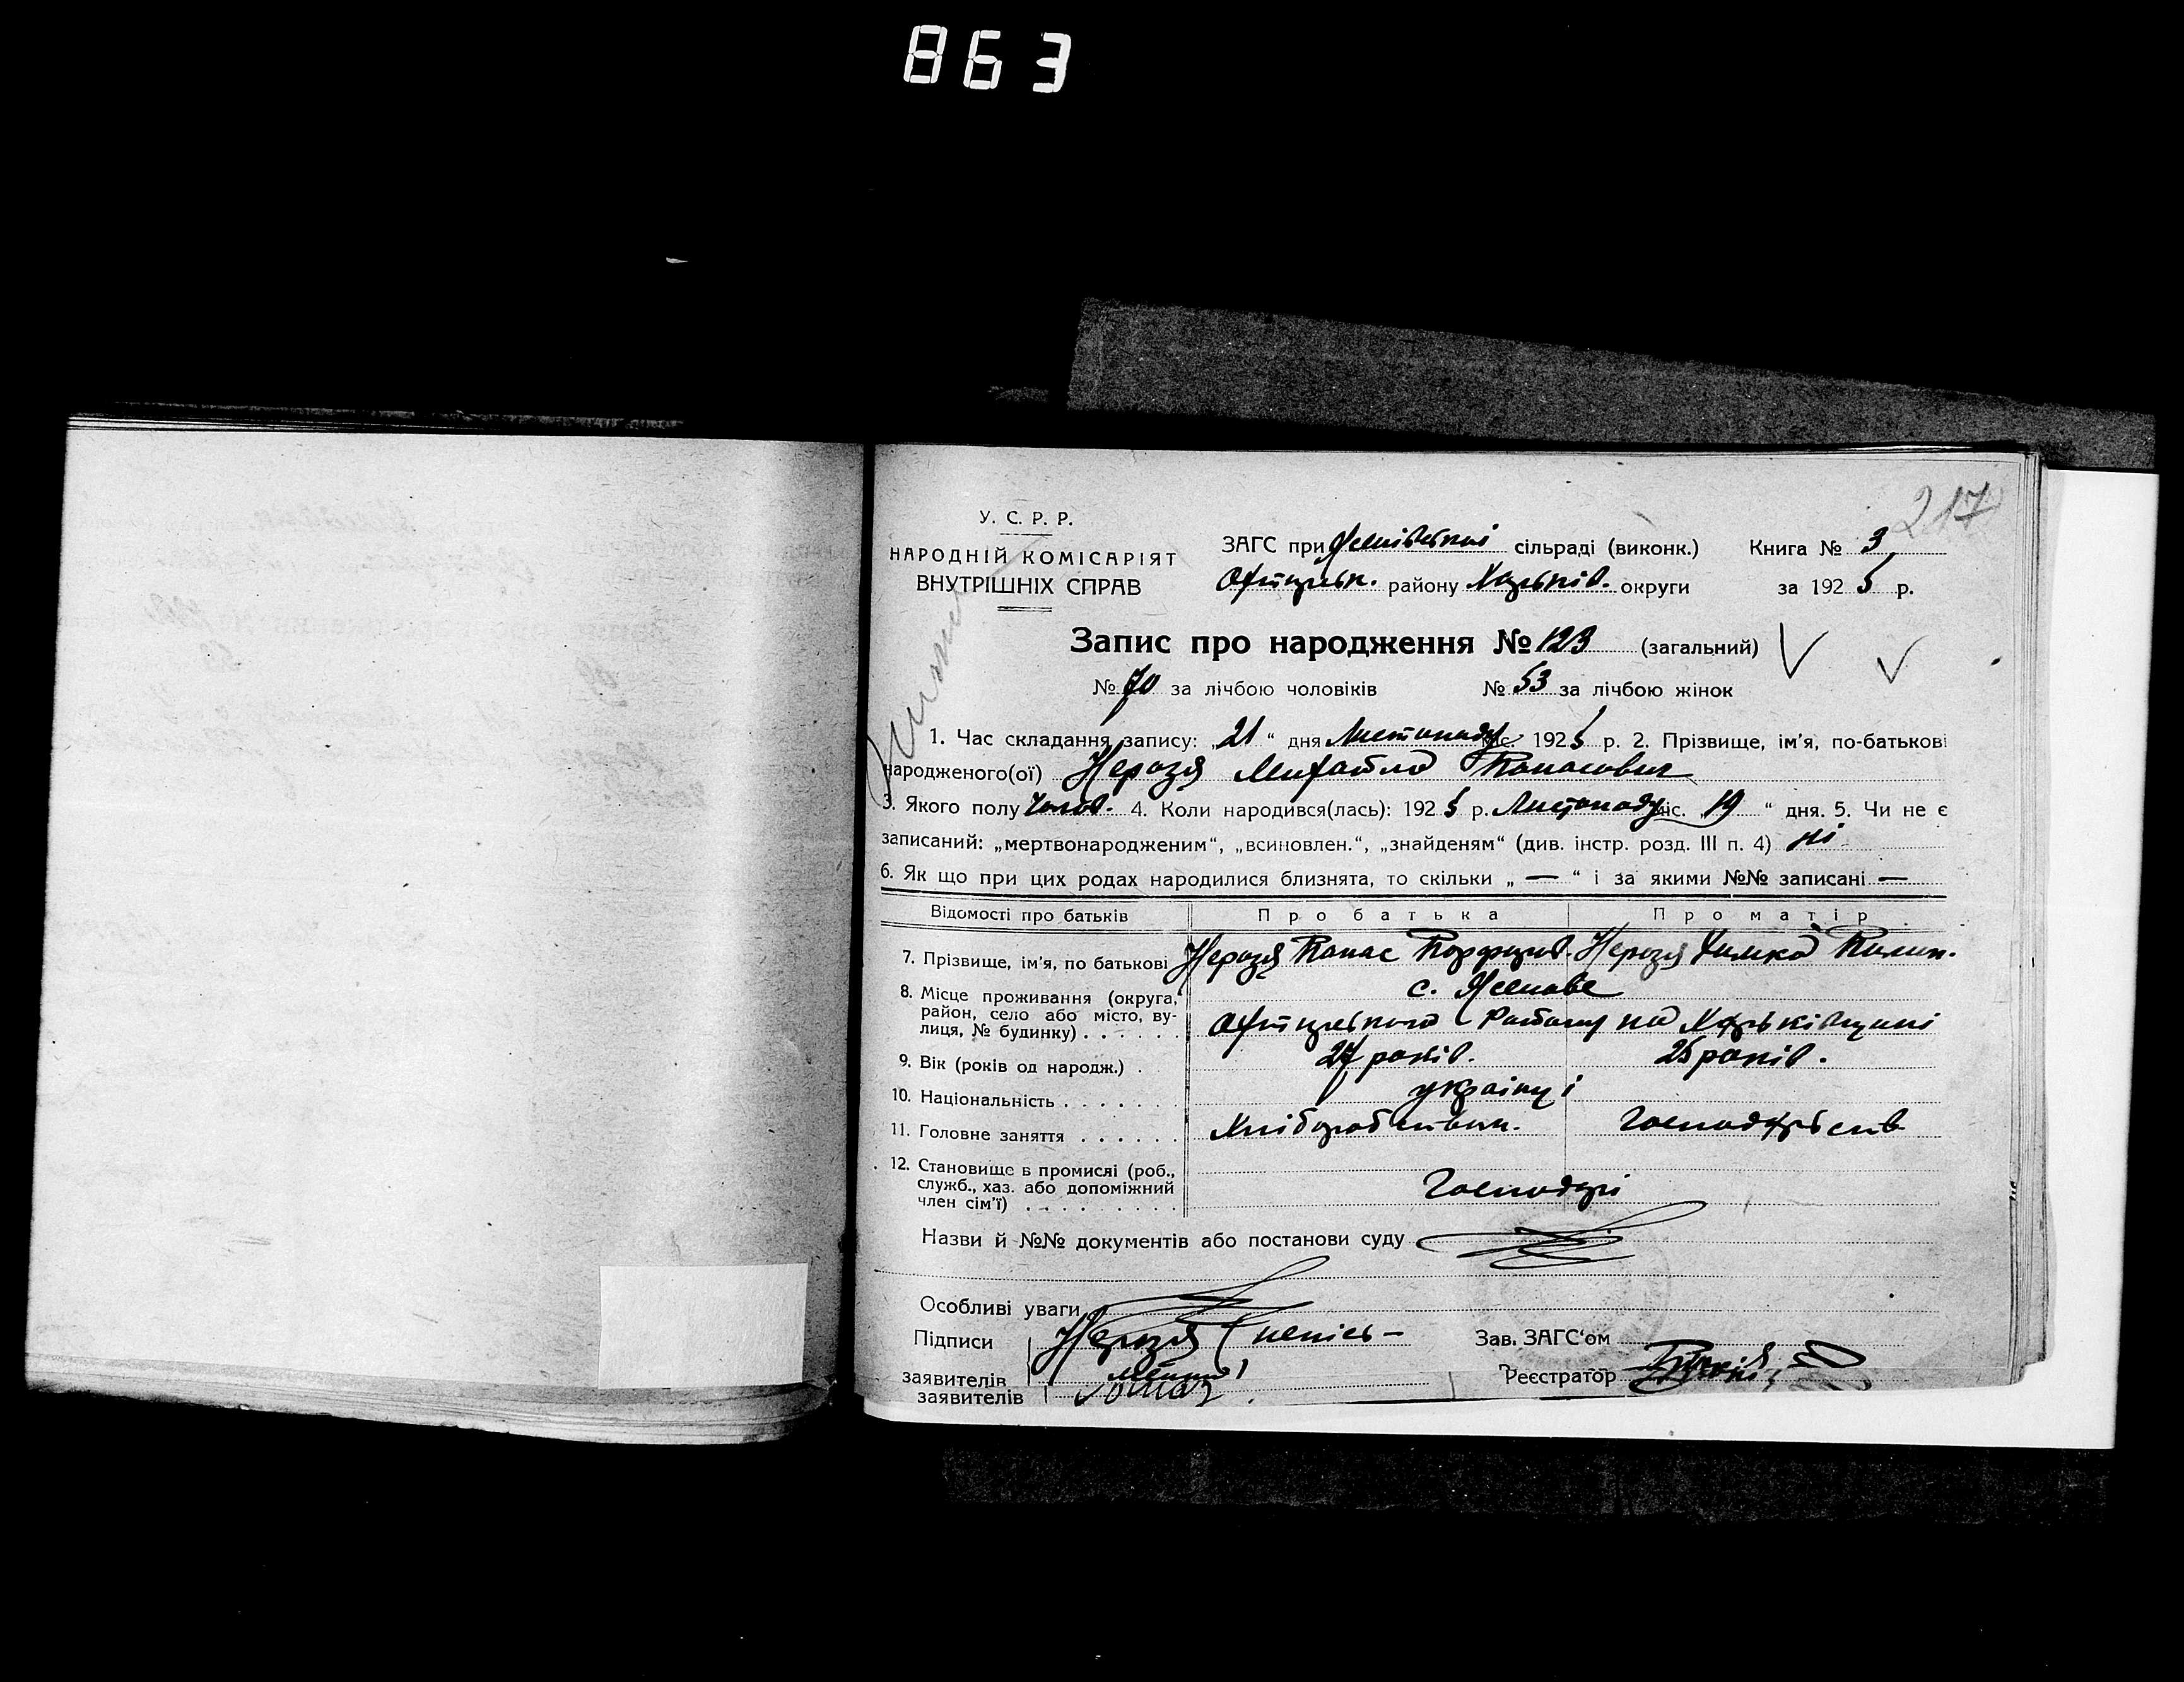 863
217
У. С. Р. Р.
НАРОДНІЙ КОМІСАРІЯТ
ВНУТРІШНІХ СПРАВ
ЗАГС при Ясенівській сільраді (виконк.)
Охтирськ. району Харьків. округи
Книга № 3
за 1925 р.
Запис про народження № 123 (загальний)
№ 70 за лічбою чоловіків № 53 за лічбою жінок
1. Час складання запису: „21“ дня Листопаду міс. 1925 р. 2. Прізвище, ім'я, по-батькові
народженого(ої) Михайло Панасович
3. Якого полу чолов. 4. Коли народився(лась): 1925 р. Листопаду міс. „19“ дня. 5. Чи не є
записаний: „мертвонародженим“, „всиновлен.“, „знайденям“ (див. інстр. розд. III п. 4) ні
6. Як що при цих родах народилися близнята, то скільки „ — “ і за якими №№ записані —
Відомості про батьків Про батька Про матір
7. Прізвище, ім'я, по батькові Панас
8. Місце проживання (округа, район, село або місто, вулиця, № будинку) с. Ясенове
Охтирського Району на Харьківщині
9. Вік (років од народж.) 27 років. 25 років.
10. Національність українці
11. Головне заняття Хліборобством.
12. Становище в промислі (роб., служб., хаз. або допоміжний член сім'ї) Господарі
Назви й №№ документів або постанови суду
Особливі уваги
Підписи
заявителів
заявителів
Зав. ЗАГС'ом
Реєстратор